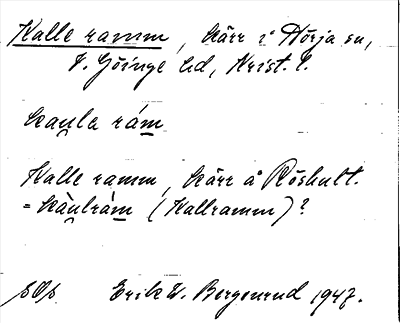 Kalle ramm, kärr i Hörja sn,
V. Göinge hd, Krist. l.
kaula rám
Kalle ramm, kärr å Röshult.
= kàulrám (Kallramm)?
Erik W. Bergenrud 1947.